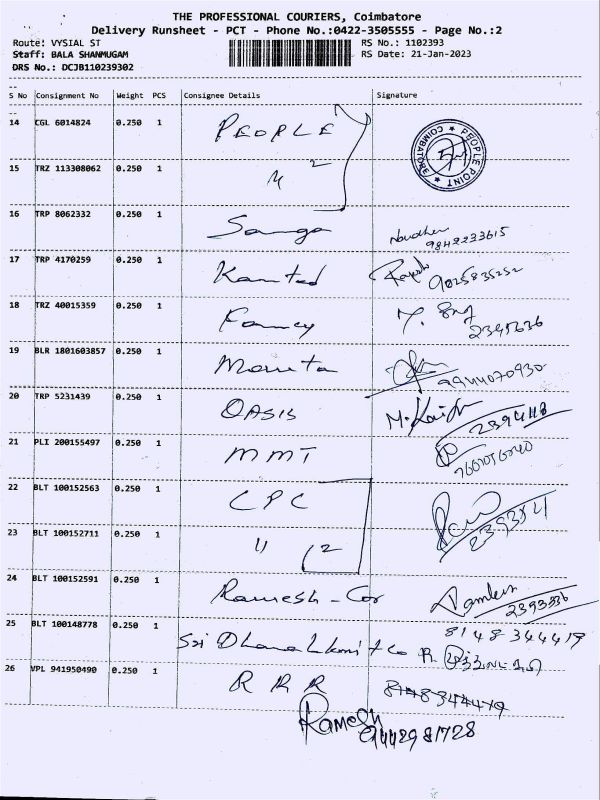 THE PROFESSIONAL COURIERS, Coimbatore
Delivery Runsheet - PCT - Phone No.:0422-3505555 - Page No.:2
Route: VYSIAL ST RS No.: 1102393
Staff: BALA SHANMUGAM RS Date: 21-Jan-2023
DRS No.: DCJB110239302
S No Consignment No Weight PCS Consignee Details Signature
14 CGL 6014824 0.250 1 PEOPLE
PEOPLE POINT COIMBATORE
15 TRZ 113308062 0.250 1 " 2
16 TRP 8062332 0.250 1
9842233615
17 TRP 4170259 0.250 1 Rajesh
9025835252
18 TRZ 40015359 0.250 1 Fancy
2395636
19 BLR 1801603857 0.250 1
9944070930
20 TRP 5231439 0.250 1 OASIS
2394118
21 PLI 200155497 0.250 1 MMT
22 BLT 100152563 0.250 1 CPC
23 BLT 100152711 0.250 1 " 2
24 BLT 100152591 0.250 1 Ramesh - Cor
2393336
25 BLT 100148778 0.250 1 Sri Dhanalakmi + co R.
8148344419
26 VPL 941950490 0.250 1 R R R
8148344419
Ramesh
9442981728